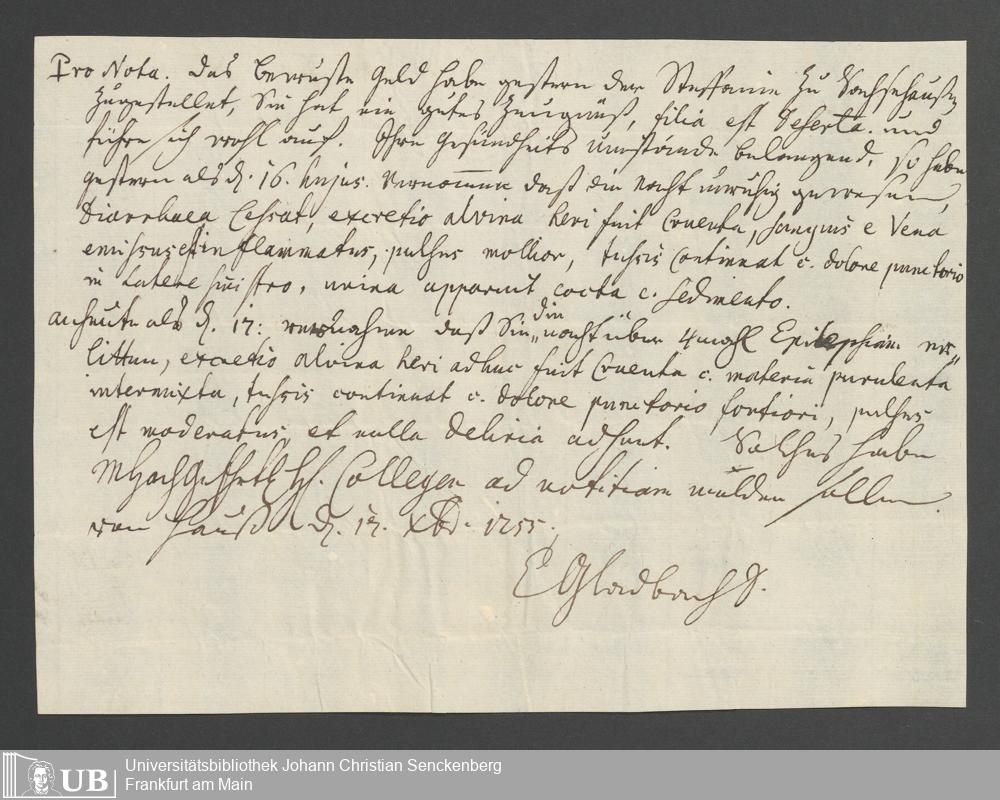 Pro Nota. das bewuste Geld habe gestern der Steffanin zu Sachsehaußen
zugestellet, Sie hat ein gutes Zeugnüß, filia est deserta. und
führe sich wohl auf. Ihre Gesundheits umstände belangend, so habe
gestern als d. 16. hujus. vernommen daß die Nacht unruhig gewesen,
Diarrhaea Cessat, excretio alvina heri fuit Cruenta, sanguis e Vena
emissus est inflammatus, pulsus mollior, tussis continuat c. dolore punctorio
in latere sinistro, urina apparuit cocta c. sedimento.
anheute als d. 17: vernahme daß Sie die nacht über 4 mahl Epilepsiam er„
litten, excretio alvina heri adhuc fuit Cruenta c. materia purulenta
intermixta, tussis continuat c. dolore punctorio fortiori, pulsus
est moderatus, et nulla deliria adsunt. Solches habe
HH. Collegen ad notitiam melden sollen.
von Hauß d. 17. Xbr. 1755.
E Gladbach D.
Universitätsbibliothek Johann Christian Senckenberg
Frankfurt am Main
UB